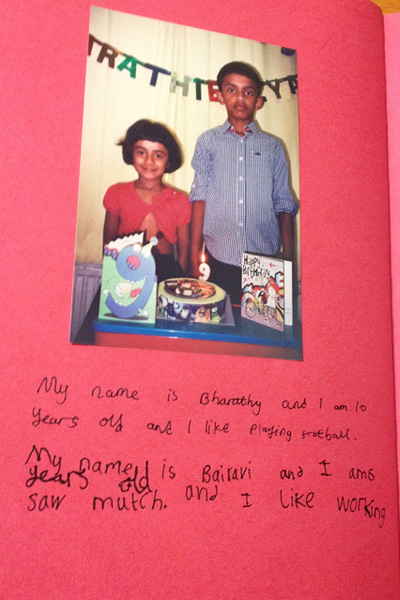 RATHIE YA
9
9
Happy
Birthday
My name is Bharathy and I am 10
years old and I like playing football.
My name is Bairavi and I am
years old
saw mutch. and I like working